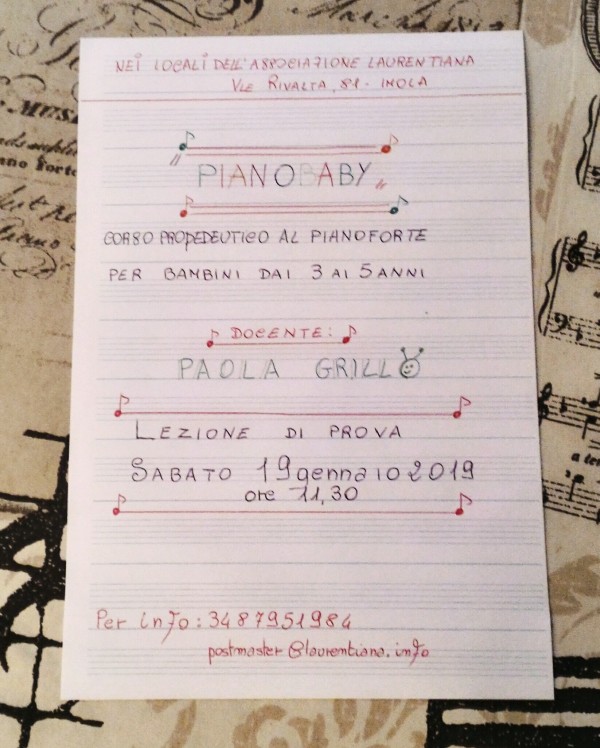 NEI LOCALI DELL'ASSOCIAZIONE LAURENTIANA
VLE RIVALTA, 81 - IMOLA
"PIANOBABY"
CORSO PROPEDEUTICO AL PIANOFORTE
PER BAMBINI DAI 3 AI 5 ANNI
DOCENTE:
PAOLA GRILLO
LEZIONE DI PROVA
SABATO 19 gennaio 2019
ore 11,30
Per info: 3487951984
postmaster@laurentiana.info
a te